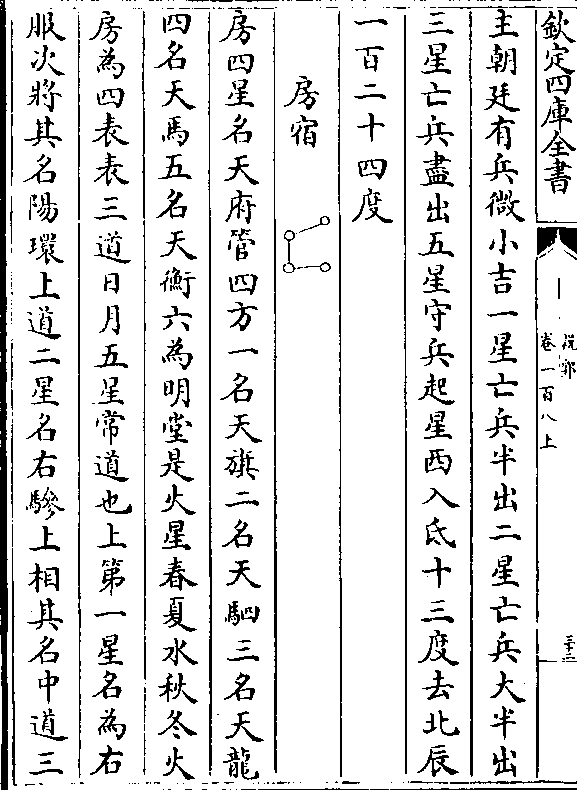 欽定四庫全書
說郛
卷一百八上
三十二
主朝廷有兵微小吉一星亡兵半出二星亡兵大半出
三星亡兵盡出五星守兵起星西入氐十三度去北辰
一百二十四度
房宿
房四星名天府管四方一名天旗二名天駟三名天龍
四名天馬五名天衡六為明堂是火星春夏水秋冬火
房為四表表三道日月五星常道也上第一星名為右
服次將其名陽環上道二星名右驂上相其名中道三